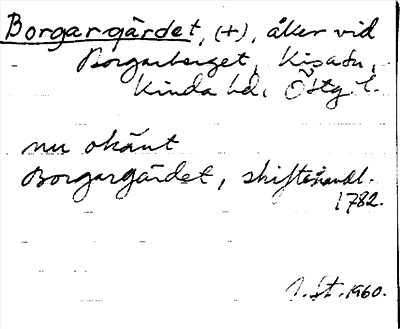 Borgargärdet, (+), åker vid
Borgarberget, Kisa sn,
Kinda hd. Östg. l.
nu okänt
Borgargärdet, skifteshandl.
1782.
St. 1960.